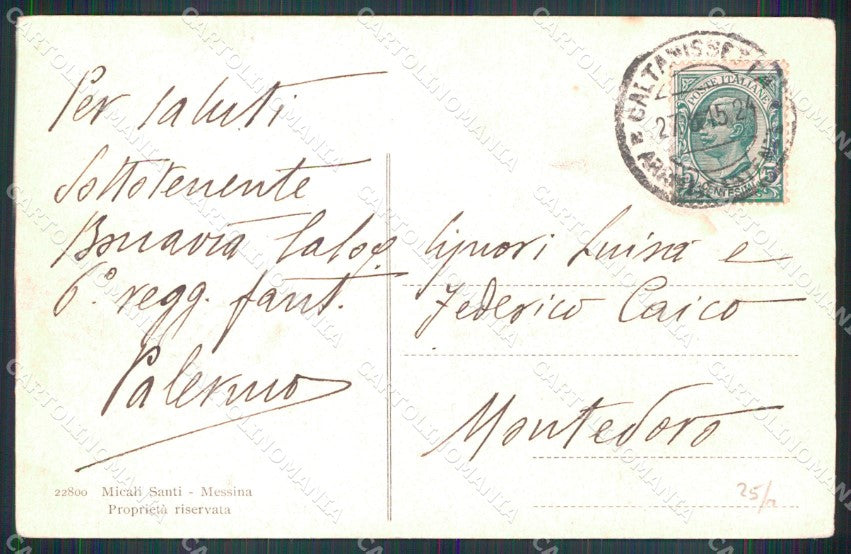 Per saluti
Sottotenente
Bonavia Calog.
6º regg. fant.
Palermo
22800 Micali Santi - Messina
Proprietà riservata
CALTANISSE
27 15 24
POSTE ITALIANE
5 CENTESIMI 5
Signori Luisa e
Federico Caico
Montedoro
25/a
CARTOLINOMANIA